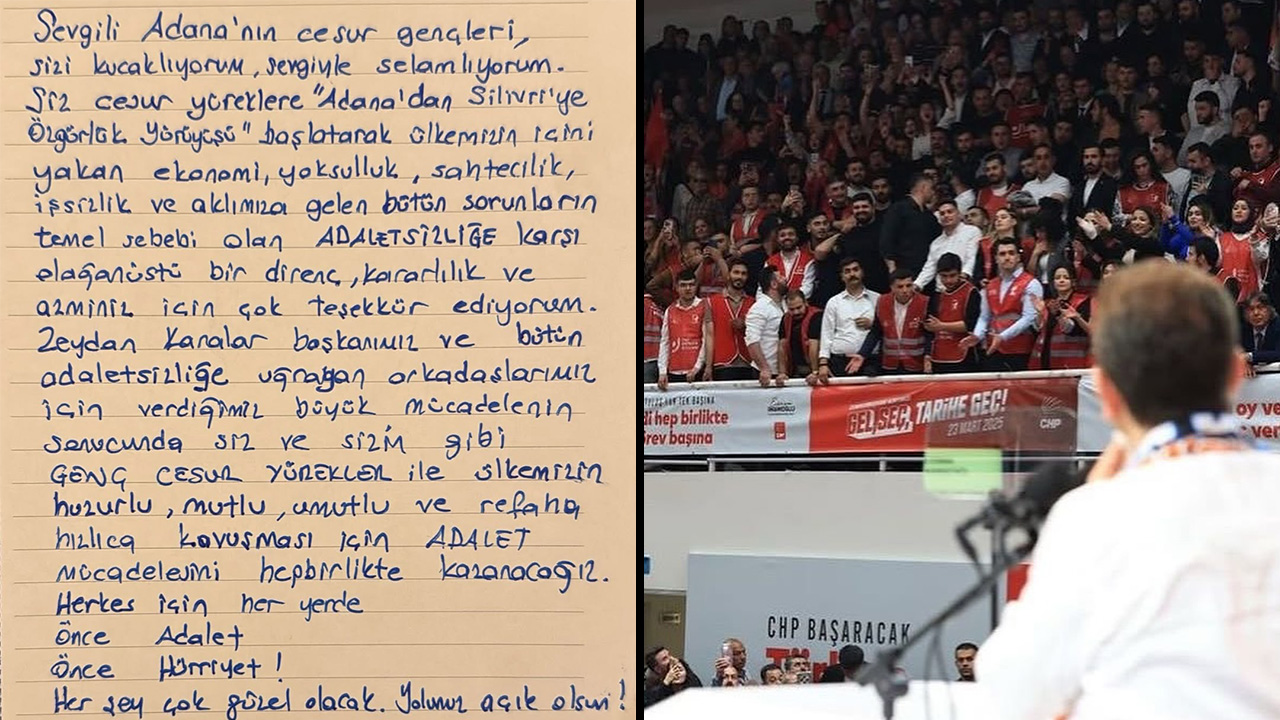 Sevgili Adana'nın cesur gençleri,
sizi kucaklıyorum, sevgiyle selamlıyorum.
Siz cesur yüreklere "Adana'dan Silivri'ye
Özgürlük Yürüyüşü" başlatarak ülkemizin içini
yakan ekonomi, yoksulluk, sahtecilik,
işsizlik ve aklımıza gelen bütün sorunların
temel sebebi olan ADALETSİZLİĞE karşı
olağanüstü bir direnç, kararlılık ve
azminiz için çok teşekkür ediyorum.
Zeydan Karalar başkanımız ve bütün
adaletsizliğe uğrayan arkadaşlarımız
için verdiğimiz büyük mücadelenin
sonucunda siz ve sizin gibi
GENÇ CESUR YÜREKLER ile ülkemizin
huzurlu, mutlu, umutlu ve refaha
hızlıca kavuşması için ADALET
mücadelesini hepbirlikte kazanacağız.
Herkes için her yerde
Önce Adalet
Önce Hürriyet!
Her şey çok güzel olacak. Yolunuz açık olsun!
TEK BAŞINA
hep birlikte
başına
Ekrem
İMAMOĞLU
GEL, SEÇ, TARİHE GEÇ!
23 MART 2025
CHP
oy ve
ver
CHP BAŞARACAK